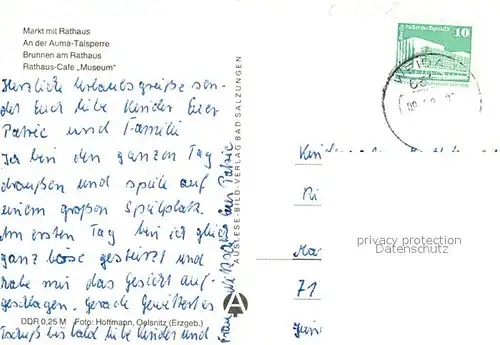 Markt mit Rathaus
An der Auma-Talsperre
Brunnen am Rathaus
Rathaus-Café „Museum"
Herzliche Urlaubsgrüße sen-
det Euch liebe Kinder Euer
Patric und Familie
Ich bin den ganzen Tag
draußen und spiele auf
einem großen Spielplatz.
Am ersten Tag bin ich gleich
ganz böse gestürzt und
habe mir das Gesicht auf-
geschlagen. Gerade gewittert es
Tschüß bis bald liebe Kinder und
Frau Euer Patric
DDR 0,25 M Foto: Hoffmann, Oelsnitz (Erzgeb.)
AUSLESE-BILD-VERLAG BAD SALZUNGEN
A
10
Kinder
71
privacy protection
Datenschutz